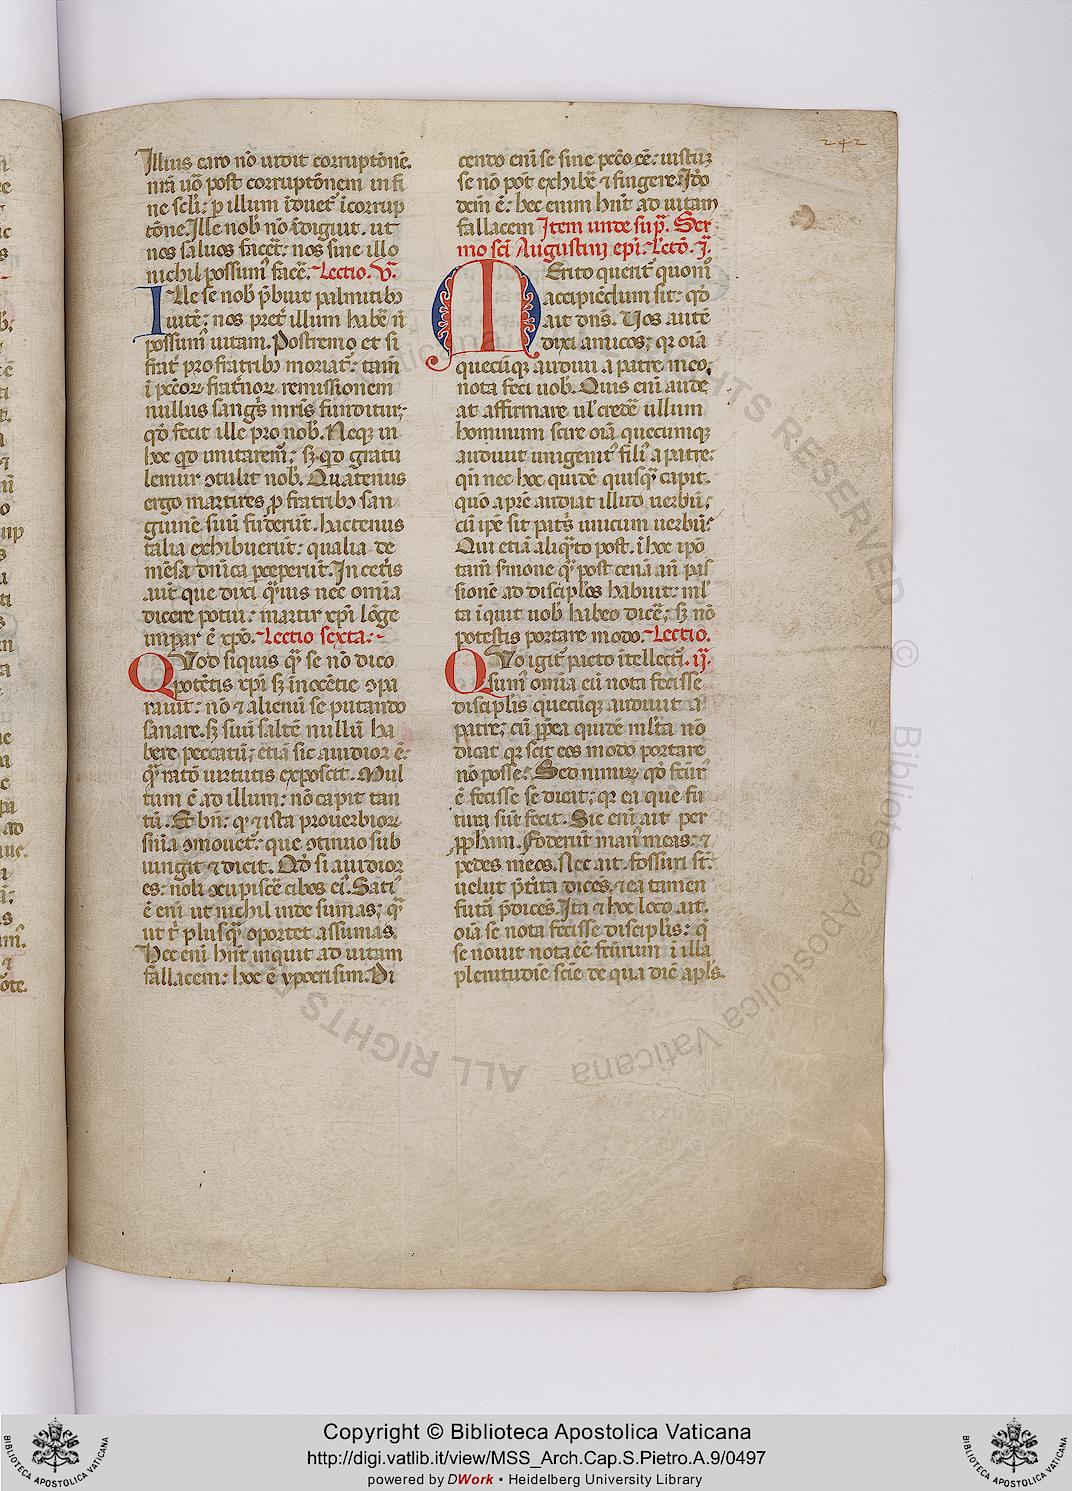 242
Illius caro nō uidit corruptōnē.
nr̄a uō post corruptōnem in fi
ne scli: p illum īduet̄ īcorrup
tōne. Ille nob̄ nō īdiguit. ut
nos saluos facēt: nos sine illo
nichil possum᾽ facē. Lectio. v̄.
Ille se nob̄ p̄buit palmitibꝫ
uitē: nos pret̄ illum habē n̄
possum᾽ uitam. Postremo et si
frat̄r pro fratribꝫ moriat̄: tam̄
ī pccōꝝ frat̄noꝝ remissionem
nullus sanguis mr̄is funditur;
qď fecit ille pro nob̄. Neqꝫ in
hoc qď imitarem᾽; sꝫ qď gratu
lemur ɔtulit nob̄. Quatenus
ergo martires p fratribꝫ san
guinē suū fuderūt. hactenus
talia exhibuerūt: qualia de
mēsa dn̄ica pceperūt. In cet̄is
aut̄ que dixi q̄uis nec omīa
dicere potui: martir xp̄i lōge
impar ē xp̄o. Lectio sexta.
Quod siquis q̄ se nō dico
potētis xp̄i sꝫ īnocētie ɔpa
rauit: nō ⁊ alienū se putando
sanare. sꝫ suū saltē nullū ha
bere peccatū; etiā sic auidior ē:
q̄ ratō uirtutis exposcit. Mul
tum ē ad illum: nō capit tan
tū. Et bn̄: q̄ ⁊ ista prouerbioꝝ
sn̄ia ɔmouet̄: que ɔtinuo sub
iungit ⁊ dicit. Qď si auidior
es: noli ɔcupiscē cibos ei᾽. Sati᾽
ē eni ut nichil inde sumas; q̄
ut t̄ plusq̄ oportet assumas.
Hec eni hn̄t inquit ad uitam
fallacem: hoc ē ypocrisim. Di
cendo eni se sine pccō ēē: iustū
se nō pōt exhibē ⁊ fingere. Ido
dem ē: hec enim hn̄t ad uitam
fallacem Item unde sup̄. Ser
mo sc̄i Augustini epī. Lectō. j̄.
Merito querit̄ quom᾽
accipiēdum sit: qď
ait dn̄s. Uos autē
dixi amicos; qꝛ oīa
quecūqꝫ audiui a patre meo,
nota feci uob̄. Quis eni aude
at affirmare ul᾽ credē ullum
hominum scire oīa quecumqꝫ
audiuit unigenit᾽ fili᾽ a patre:
qn̄ nec hoc quidē quisq̄ capit.
quō a prē audiat illud uerbū;
cū ip̄e sit pat̄s unicum uerbū?
Qui etiā aliq̄to post. ī hoc ip̄o
tam̄ smone q̄ post cenā an̄ pas
sionē ad discipl̄os habuit: ml᾽
ta īquit uob̄ habeo dicē; sꝫ nō
potestis portare modo. Lectio.
Quo igit̄ pacto ītellect᾽i. ij̄.
sum᾽ omīa eū nota fecisse
discipl̄is quecūqꝫ audiuit a
patre; cū pp̄ea quidē ml̄ta nō
dicat qꝛ scit eos modo portare
nō posse? Sed nimiꝝ qď fctūr᾽
ē fecisse se dicit; qꝛ ea que fu
tura sūt fecit. Sic eni ait per
pp̄ham. Foderūt man᾽ meas: ⁊
pedes meos. Nec ait. fossuri st̄:
uelut p̄t̄ita dicēs. ⁊ ea tamen
futā p̄dicēs. Ita ⁊ hoc loco ait.
oīa se nota fecisse discipl̄is: q̄
se nouit nota ēē fctūrum ī illa
plenitudīe scīe de qua diē apl̄s.
ALL RIGHTS RESERVED © Biblioteca Apostolica Vaticana
Copyright © Biblioteca Apostolica Vaticana
http://digi.vatlib.it/view/MSS_Arch.Cap.S.Pietro.A.9/0497
powered by DWork • Heidelberg University Library
BIBLIOTECA APOSTOLICA VATICANA
BIBLIOTECA APOSTOLICA VATICANA